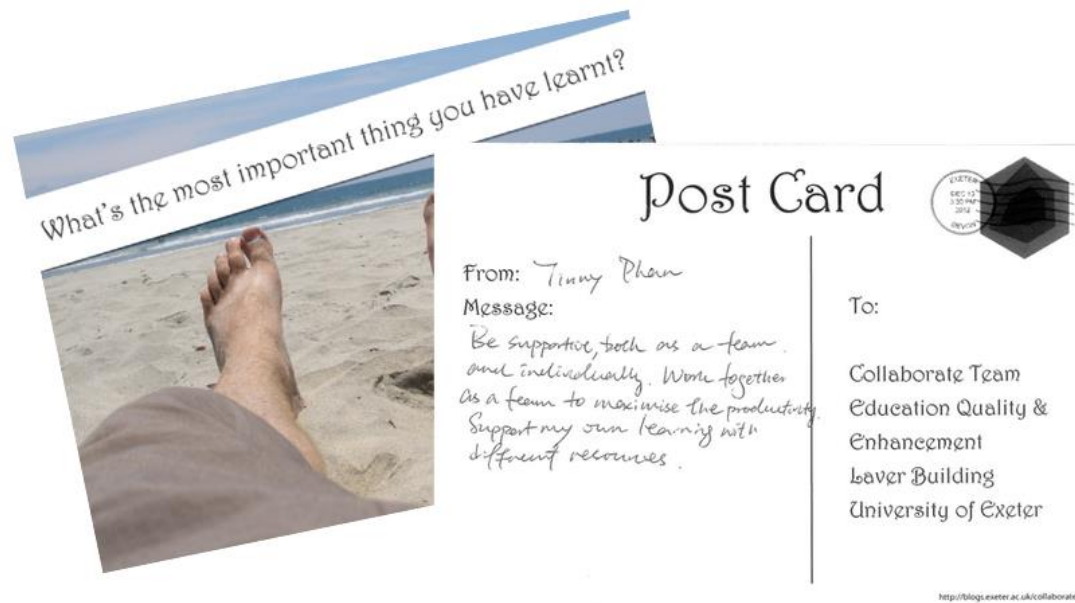 What's the most important thing you have learnt?
Post Card
EXETER
DEC 13
3:30 PM
2012
DEVON
From: Tinny Phan
Message:
Be supportive, both as a team
and individually. Work together
as a team to maximise the productivity.
Support my own learning with
different resources.
To:
Collaborate Team
Education Quality &
Enhancement
Laver Building
University of Exeter
http://blogs.exeter.ac.uk/collaborate